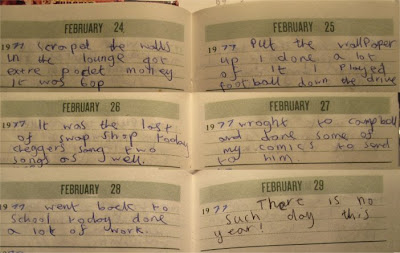 FEBRUARY 24
1977 Scraped the walls
in the lounge got
extre pocket money
It was 60p
FEBRUARY 25
1977 Put the wallPaper
up I done a lot
of it I Played
football down the drive
FEBRUARY 26
1977 It was the last
of swap shop today
cheggers sang two
songs as well.
FEBRUARY 27
1977 wroght to campball
and done some of
my comics to send
to him.
FEBRUARY 28
1977 went back to
school today done
a lot of work.
FEBRUARY 29
1977 There is no
such day this
year!